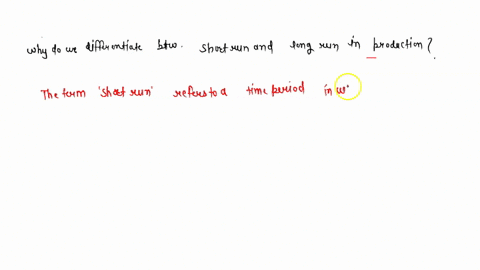 why do we differentiate btw. short run and long run in production?
The term 'short run' refers to a time period in w